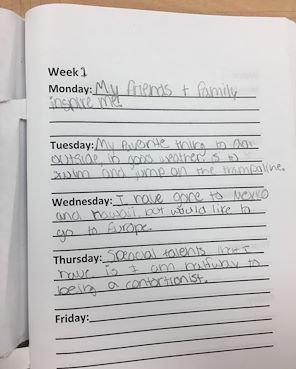 Week 1
Monday: My friends + family
inspire me!
Tuesday: My favorite thing to do
outside, in good weather is to
swim and jump on the trampoline.
Wednesday: I have gone to Mexico
and Hawaii but would like to
go to Europe.
Thursday: Special talents that I
have is I am halfway to
being a contortionist.
Friday: